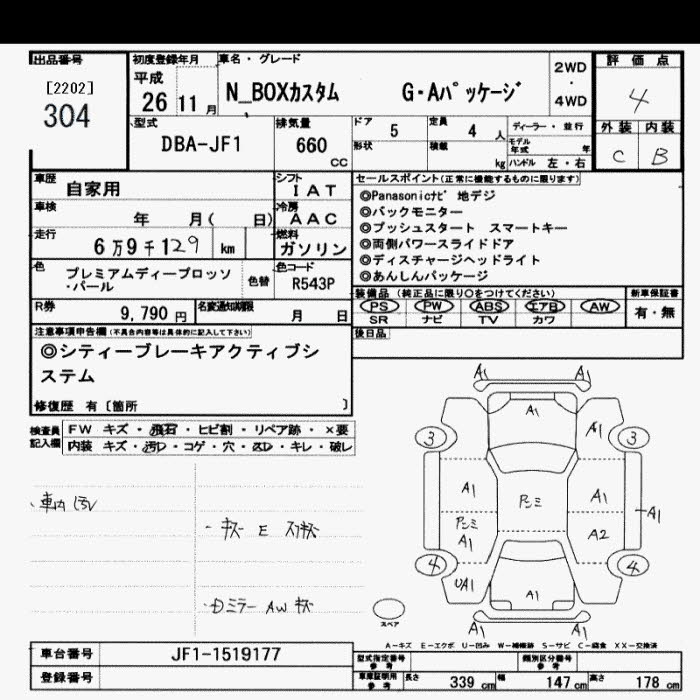 出品番号
[2202]
304
初度登録年月
平成
26 11 月
車名・グレード
N_BOXカスタム G・Aパッケージ
2WD
・
4WD
評価点
4
外装 内装
C B
型式
DBA-JF1
排気量
660 cc
ドア 5
定員 4 人
ディーラー・並行
形状
積載 kg
モデル年式 年
ハンドル 左・右
車歴
自家用
シフト
IAT
車検
年 月( 日)
冷房
AAC
走行
6万9千129 km
燃料
ガソリン
色
プレミアムディープロッソ
・パール
色替
色コード
R543P
R券
9,790 円
名変通知期限
月 日
セールスポイント(正常に機能するものに限ります)
◎Panasonicナビ 地デジ
◎バックモニター
◎プッシュスタート スマートキー
◎両側パワースライドドア
◎ディスチャージヘッドライト
◎あんしんパッケージ
装備品 (純正品に限り○をつけてください)
PS PW ABS エアB AW
SR ナビ TV カワ
新車保証書
有・無
後日品
注意事項申告欄(不具合内容等は具体的に記入して下さい)
◎シティーブレーキアクティブシ
ステム
修復歴 有〔箇所 〕
検査員
記入欄
FW キズ・飛石・ヒビ割・リペア跡・×要
内装 キズ・汚レ・コゲ・穴・スレ・キレ・破レ
・車内汚レ
・キズ E スリキズ
・ミラー AW キズ
A1 A1
A1
3 A1 3
A1 A1
A1
A1 A2
4 4
UA1 A1
A1 A1
スペア
A-キズ E-エクボ U-凹み W-補修跡 S-サビ C-腐食 XX-交換済
車台番号
JF1-1519177
登録番号
型式指定番号
参考
類別区分番号
参考
車庫証明用
参考
長さ 339 cm 幅 147 cm 高さ 178 cm